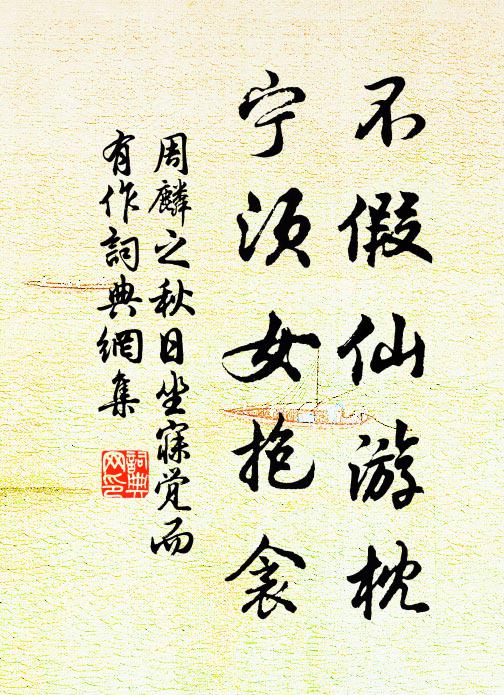 不假仙游枕
宁须女抱衾
周麟之秋日坐寐觉而
有作詞典網集
詞典
网印